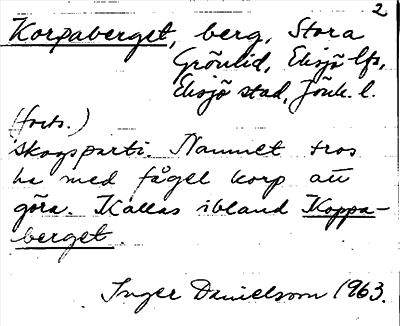 2
Korpaberget, berg, Stora
Grönlid, Eksjö lfs,
Eksjö stad, Jönk. l.
(forts.)
skogsparti. Namnet tros
ha med fågel korp att
göra. Kallas ibland Koppa-
berget.
Inger Danielsson 1963.